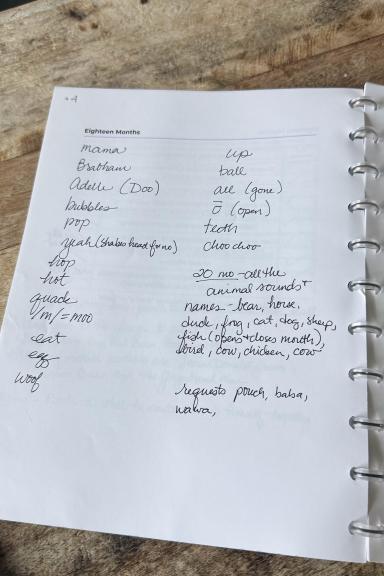 +4
Eighteen Months
mama
Bratham
Adelle (Doo)
bubbles
pop
yeah (shakes head for no)
hop
hot
quack
/m/=moo
eat
egg
woof
up
ball
all (gone)
ō (open)
teeth
choo choo
20 mo - all the
animal sounds +
names - bear, horse,
duck, frog, cat, dog, sheep,
fish (opens + closes mouth),
bird, cow, chicken, cow
requests pouch, baba,
wawa,